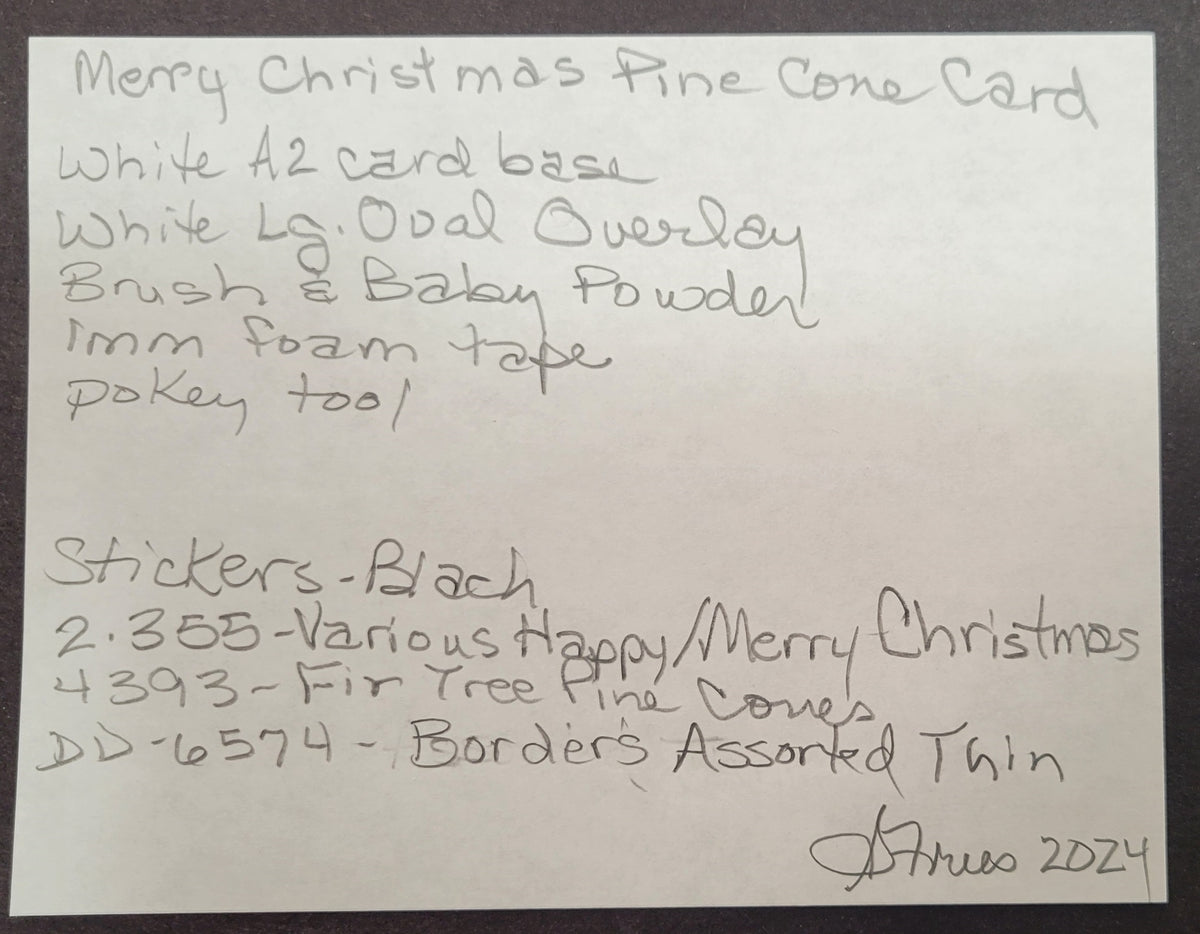 Merry Christmas Pine Cone Card
White A2 card base
White Lg. Oval Overlay
Brush & Baby Powder
1mm foam tape
pokey tool
Stickers - Black
2.355 - Various Happy/Merry Christmas
4393 - Fir Tree Pine Cones
DD-6574 - Borders Assorted Thin
2024